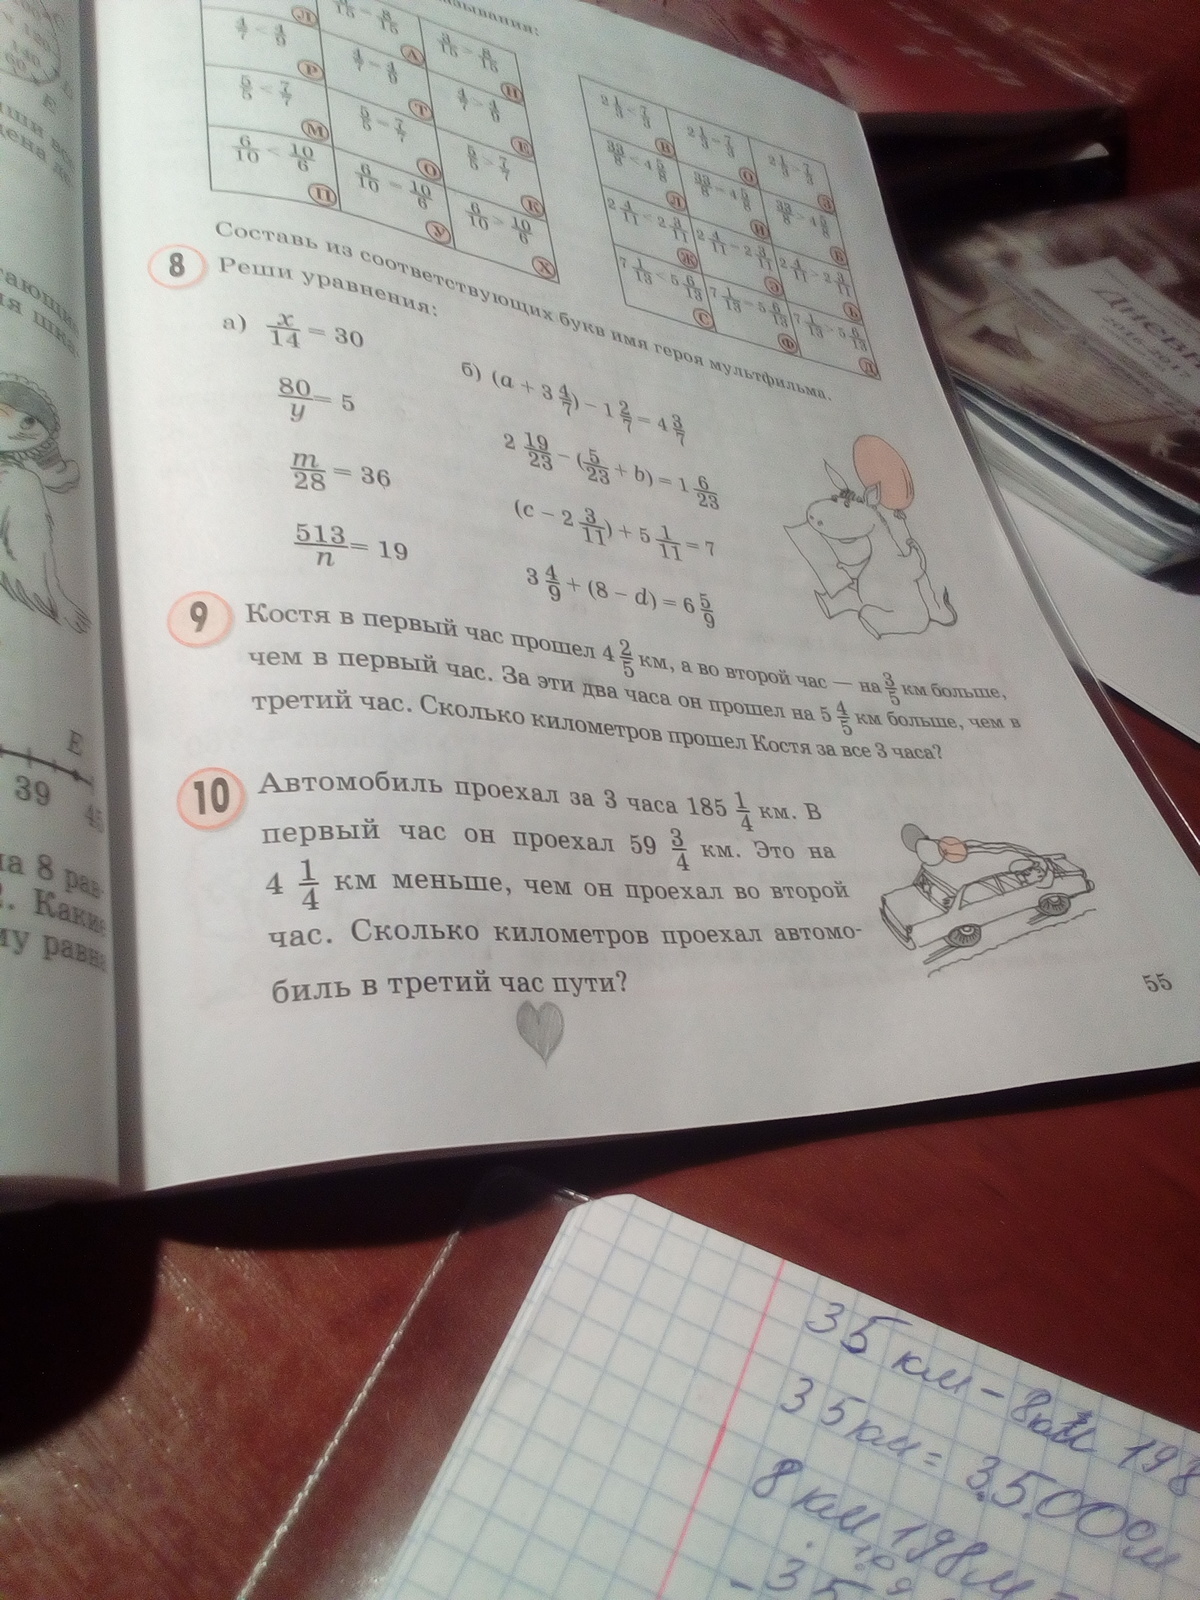 4/7 < 4/9 Р
4/7 = 4/9 Т
4/7 > 4/9 Е
5/5 < 7/7 М
5/5 = 7/7 О
5/5 > 7/7 К
6/10 < 10/6 П
6/10 = 10/6 У
6/10 > 10/6 Х
2 1/3 < 7/3 В
2 1/3 = 7/3 О
2 1/3 > 7/3 З
33/8 < 4 5/8 Л
33/8 = 4 5/8 И
33/8 > 4 5/8
2 4/11 < 2 3/11 Ж
2 4/11 = 2 3/11 Э
2 4/11 > 2 3/11 Ь
7 1/13 < 5 6/13 С
7 1/13 = 5 6/13 Ф
7 1/13 > 5 6/13 Д
Составь из соответствующих букв имя героя мультфильма.
8 Реши уравнения:
а) x/14 = 30
80/y = 5
m/28 = 36
513/n = 19
б) (a + 3 4/7) − 1 2/7 = 4 3/7
2 19/23 − (5/23 + b) = 1 6/23
(c − 2 3/11) + 5 1/11 = 7
3 4/9 + (8 − d) = 6 5/9
9 Костя в первый час прошел 4 2/5 км, а во второй час — на 3/5 км больше,
чем в первый час. За эти два часа он прошел на 5 4/5 км больше, чем в
третий час. Сколько километров прошел Костя за все 3 часа?
10 Автомобиль проехал за 3 часа 185 1/4 км. В
первый час он проехал 59 3/4 км. Это на
4 1/4 км меньше, чем он проехал во второй
час. Сколько километров проехал автомо-
биль в третий час пути?
55
E
39
45
на 8 рав-
Какие
му равна
35 км - 8км 198
35км = 35.000м
8 км 198м =